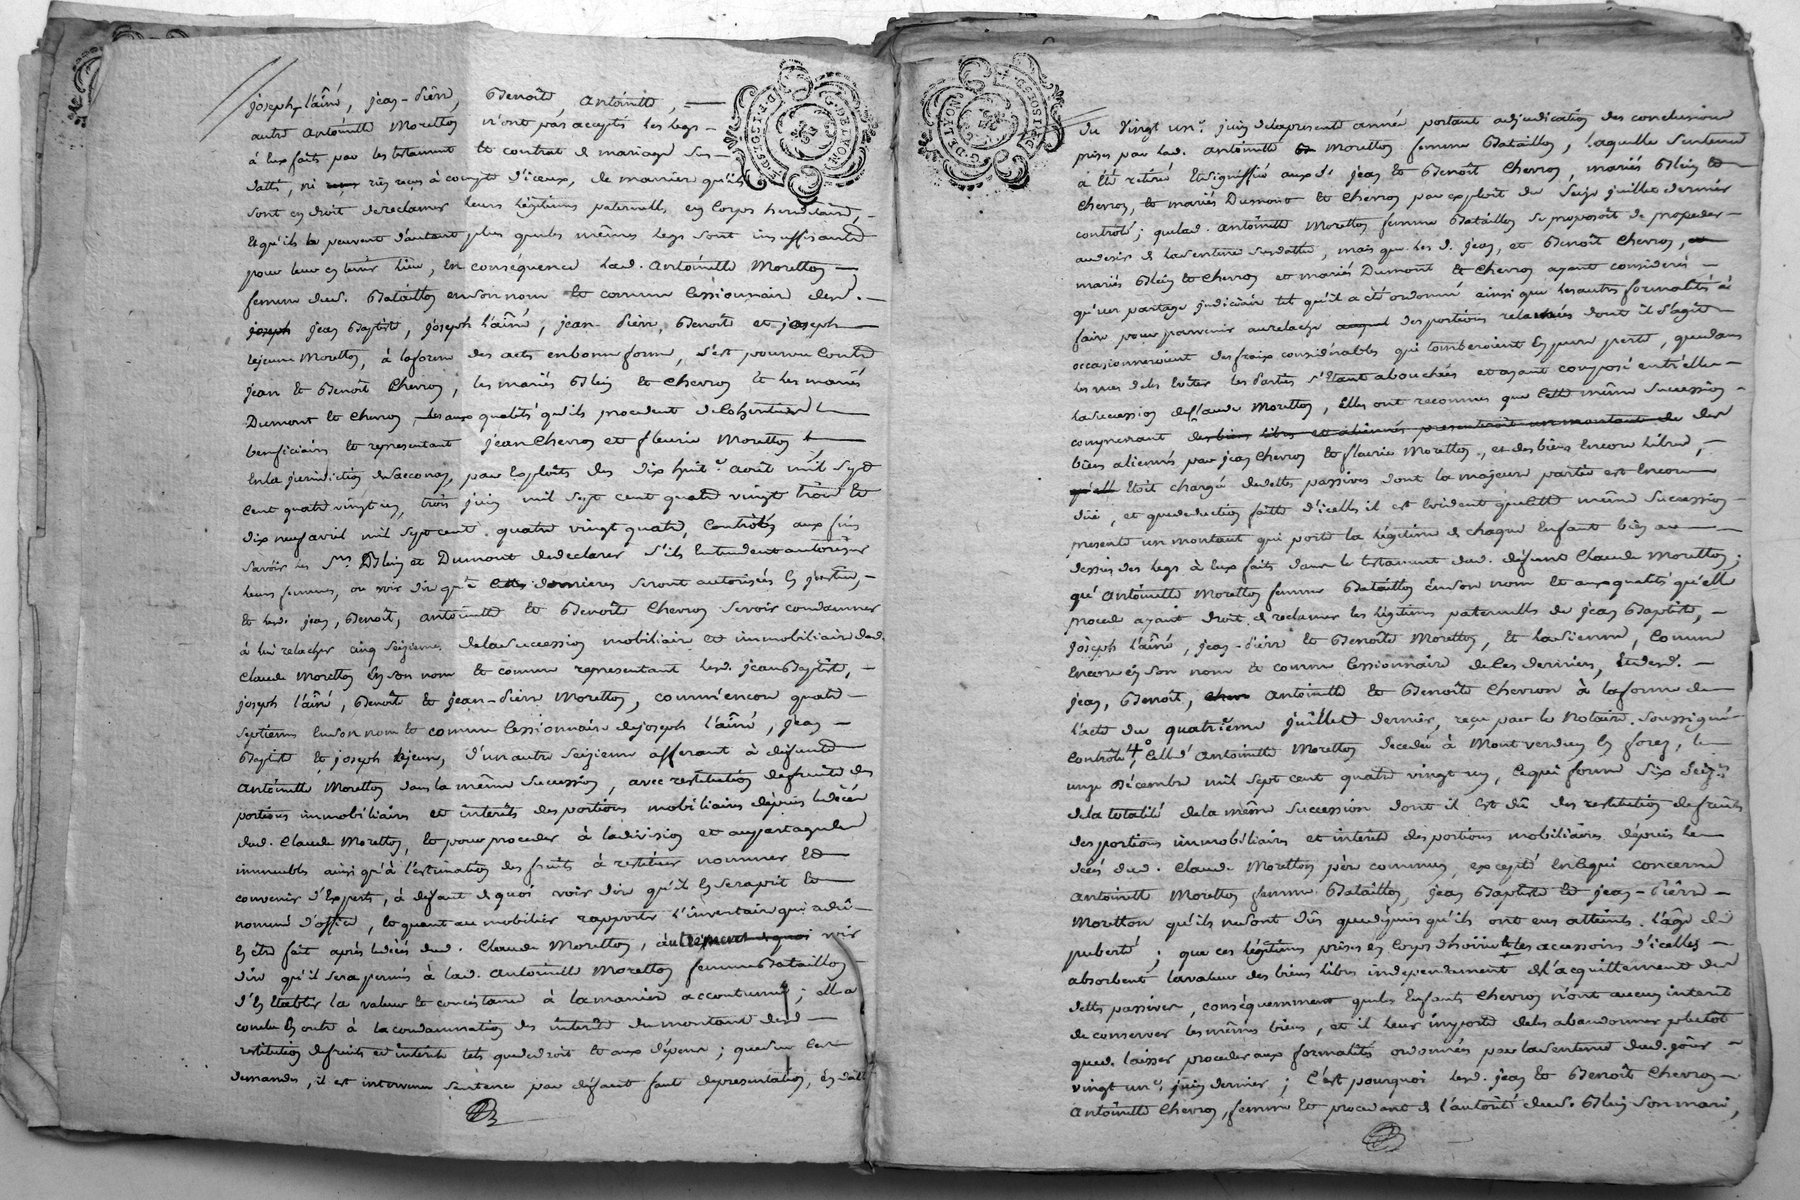 joseph l'aîné, jean-pierre, Benoîte, antoinette,
autre antoinette Moretton n'ont pas accepté les legs
à eux faits par les testament et contrat de mariage sus-
datté, ni rien reçu à compte d'iceux, de manière qu'ils
sont en droit de reclamer leurs légitimes paternelles en corps hereditaire,
et qu'ils le peuvent d'autant plus que les mêmes legs sont insuffisants
pour leur en tenir lieu, en conséquence lad. antoinette Moretton
femme dud. Bataillon en son nom et comme cessionnaire desd.
joseph jean Baptiste, joseph l'aîné, jean-pierre, Benoîte et joseph
lejeune Moretton, à la forme des actes en bonne forme, s'est pourvue contre
jean et Benoît Chevron, les mariés Blein et Chevron et les mariés
Dumont et Chevron, es qualités qu'ils procedent de cohéritiers
beneficiaires et representant jean Chevron et fleurie Moretton
en la jurisdiction de saconay, par exploits des dix huit août mil sept
cent quatre vingt un, trois juin mil sept cent quatre vingt trois et
dix neuf avril mil sept cent quatre vingt quatre, controlés aux fins
savoir les Srs Blein et Dumont de declarer s'ils entendent autoriser
leurs femmes, ou voir dire que ces dernieres seront autorisées en justice,
et lesd. jean, Benoît, antoinette et Benoîte Chevron se voir condamner
à lui relacher cinq seiziemes de la succession mobiliaire et immobiliaire dud.
Claude Moretton en son nom et comme representant lesd. jean Baptiste,
joseph l'aîné, Benoîte et jean-pierre Moretton, comm'encore quatre
septiemes en son nom et comme cessionnaire de joseph l'aîné, jean
Baptiste et joseph lejeune, d'un autre seizieme afferant à defunte
antoinette Moretton dans la même succession, avec restitution de fruits des
portions immobiliaires et interêts des portions mobiliaires depuis le décès
dud. Claude Moretton, et pour proceder à la division et au partage des
immeubles ainsi qu'à l'estimation des fruits à restituer nommer et
convenir d'Experts, à defaut de quoi voir dire qu'il en seroit
nommé d'office, et quant au mobilier rapporter l'inventaire qui a dû
en être fait après le décès dud. Claude Moretton, autrement voir
dire qu'il sera permis à lad. antoinette Moretton femme Bataillon
d'en etablir la valeur et consistance à la manière accoutumée; elle a
conclu en outre à la condamnation des interêts du montant desd.
restitution de fruits et interêts tels que de droit et aux dépens; que sur ces
demandes, il est intervenu sentence par défaut faute de presentation, en datte
du vingt un juin de la presente année portant adjudication des conclusions
prises par lad. antoinette Moretton femme Bataillon, laquelle sentence
à été retirée et signiffiée aux Srs jean et Benoît Chevron, mariés Blein et
Chevron, et mariés Dumont et Chevron par exploit du seize juillet dernier
controlé; que lad. antoinette Moretton femme Bataillon se proposoit de proceder
au desir de la sentence susdatte, mais que les d. jean, et Benoît Chevron,
mariés Blein et Chevron et mariés Dumont et Chevron ayant consideré
qu'un partage judiciaire tel qu'il a été ordonné ainsi que les autres formalités à
faire pour parvenir au relache des portions relachées dont il s'agit
occasionneroient des fraix considérables qui tomberoient en pure perte, que dans
les vues de les éviter les parties s'etant abouchées et ayant composé entr'elles
la succession de Claude Moretton, elles ont reconnu que cette même succession
comprenant les biens libres et alienés presentoit un montant de des
biens alienés par jean Chevron et fleurie Moretton, et des biens encore libres,
etoit chargée de dettes passives dont la majeure partie est encore
düe, et que deduction faite d'icelles il est evident que cette même succession
presente un montant qui porte la légitime de chaque enfant bien au
dessus des legs à eux faits dans le testament dud. défunt Claude Moretton;
qu'antoinette Moretton femme Bataillon en son nom et aux qualités qu'elle
procede ayant droit de reclamer les légitimes paternelles de jean Baptiste,
joseph l'aîné, jean-pierre et Benoîte Moretton, et la sienne, comme
encore en son nom et comme cessionnaire de ces derniers, et desd.
jean, Benoît, antoinette et Benoîte Chevron à la forme de
l'acte du quatrieme juillet dernier, reçu par le Notaire soussigné
controlé, 4° celle d'antoinette Moretton decedée à Montverdun en forez, le
onze décembre mil sept cent quatre vingt un, ce qui forme six seiz.es
de la totalité de la même succession dont il est dû des restitution de fruits
des portions immobiliaires et interêts des portions mobiliaires depuis le
décès dud. Claude Moretton père commun, excepté en ce qui concerne
antoinette Moretton femme Bataillon, jean Baptiste et jean-pierre
Moretton qu'ils ne sont dûs que depuis qu'ils ont eus atteints l'âge de
puberté; que ces légitimes prises en corps d'hoirie et les accessoires d'icelles
absorbent la valeur des biens libres independament de l'acquittement des
dettes passives, conséquemment que les enfants Chevron n'ont aucun interêt
de conserver les mêmes biens, et il leur importe de les abandonner plutôt
que de laisser proceder aux formalités ordonnées par la sentence dud. jour
vingt un juin dernier; C'est pourquoi lesd. jean et Benoît Chevron
antoinette Chevron, femme et procedant de l'autorité dud. Blein son mari,
G. DE LYON
G. DE LYON